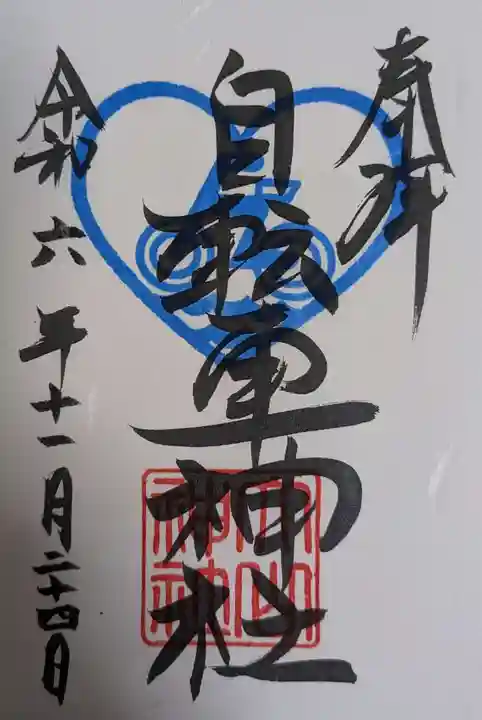 奉拝
自転車神社
令和六年十一月二十四日